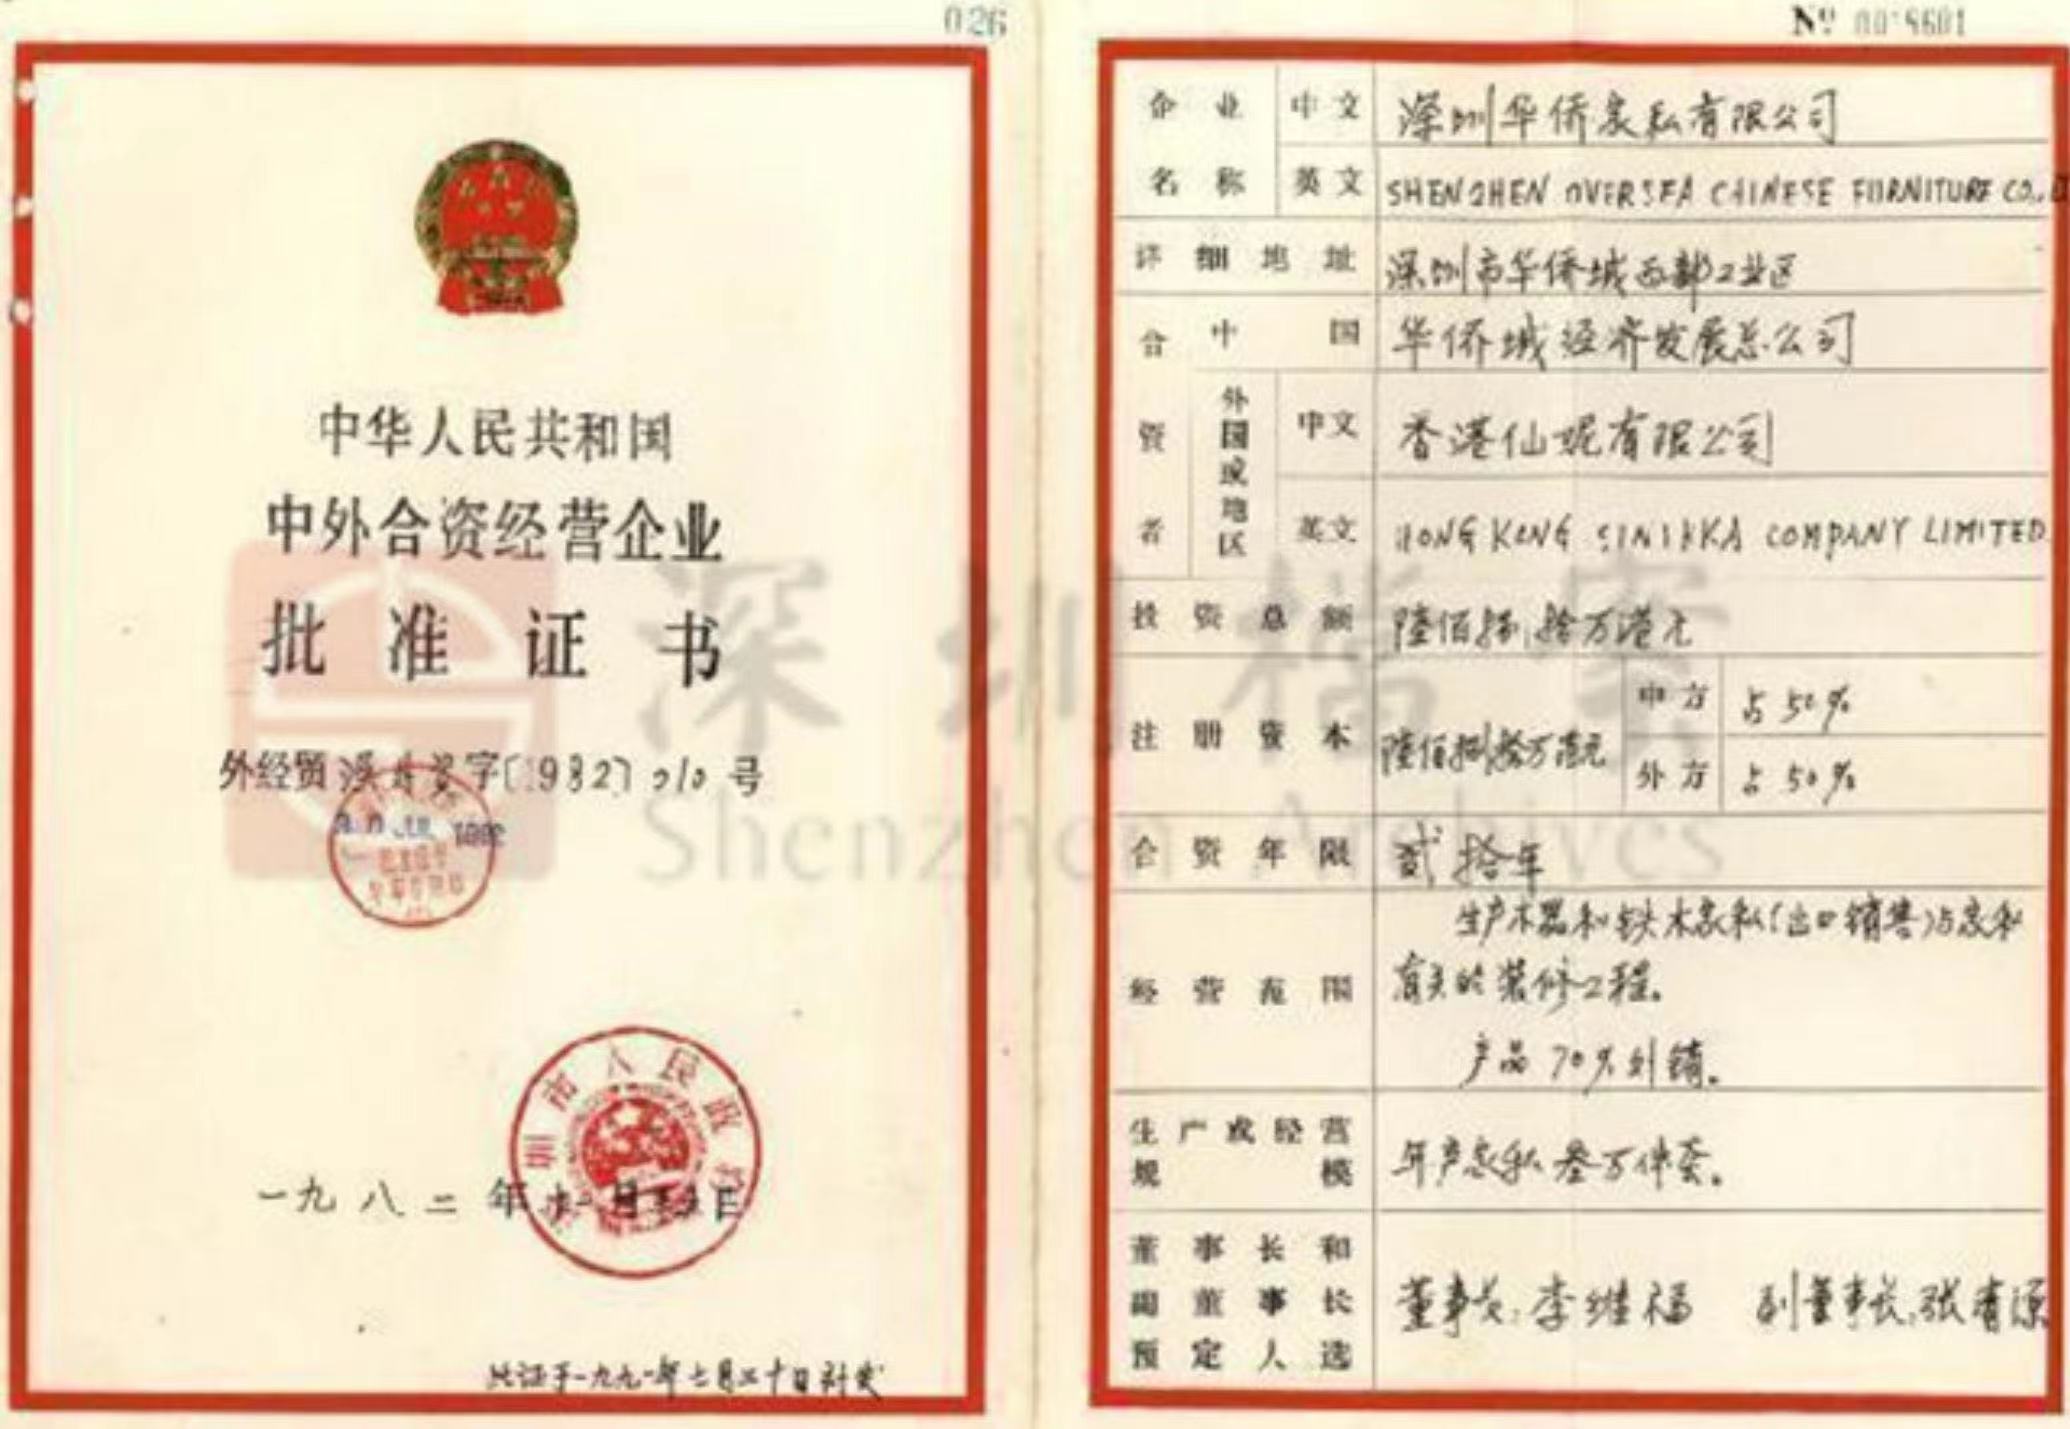 026
中华人民共和国
中外合资经营企业
批准证书
外经贸深合资字〔1982〕010号
深圳市人民政府
一九八二年十一月 日
此证于一九九一年七月三十日补发
No
企业名称 中文 深圳华侨家私有限公司
英文 SHENZHEN OVERSEA CHINESE FURNITURE CO.,
详细地址 深圳市华侨城西部工业区
合资者 中国 华侨城经济发展总公司
外国或地区 中文 香港仙妮有限公司
英文 HONG KONG SINIKKA COMPANY LIMITED.
投资总额 陆佰捌拾万港元
注册资本 陆佰捌拾万港元 中方 占50%
外方 占50%
合资年限 贰拾年
经营范围 生产木器和铁木家私(出口销售)与家私
有关的装修工程。
产品70%外销。
生产或经营规模 年产家私叁万件套。
董事长和副董事长预定人选 董事长:李维福 副董事长:张有源
深圳档案
Shenzhen Archives